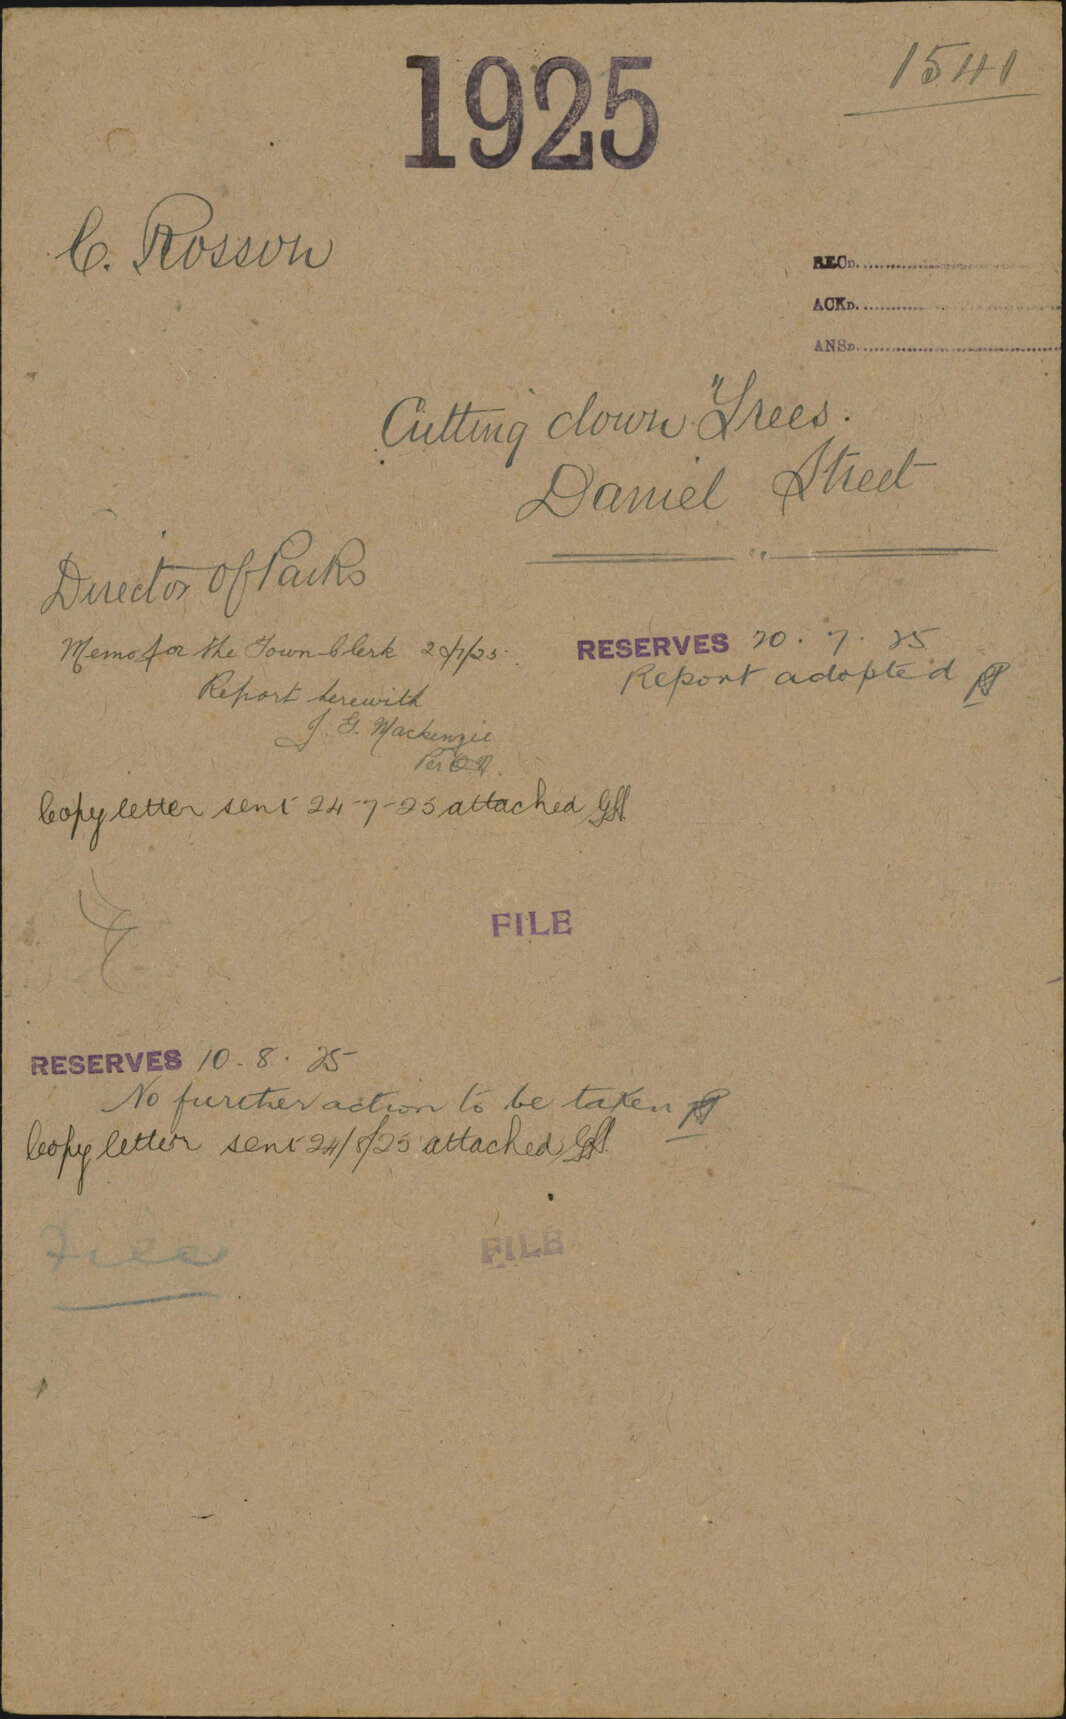 1541
1925
C. Rosson
RECD.
ACKD.
ANSD.
Cutting down Trees.
Daniel Street
Director of Parks
Memo for the Town Clerk 20/7/25
Report herewith
J. G. Mackenzie
Per
RESERVES 20. 7. 25
Report adopted
Copy letter sent 24-7-25 attached
FILE
RESERVES 10-8. 25
No further action to be taken
Copy letter sent 24/8/25 attached
File
FILE